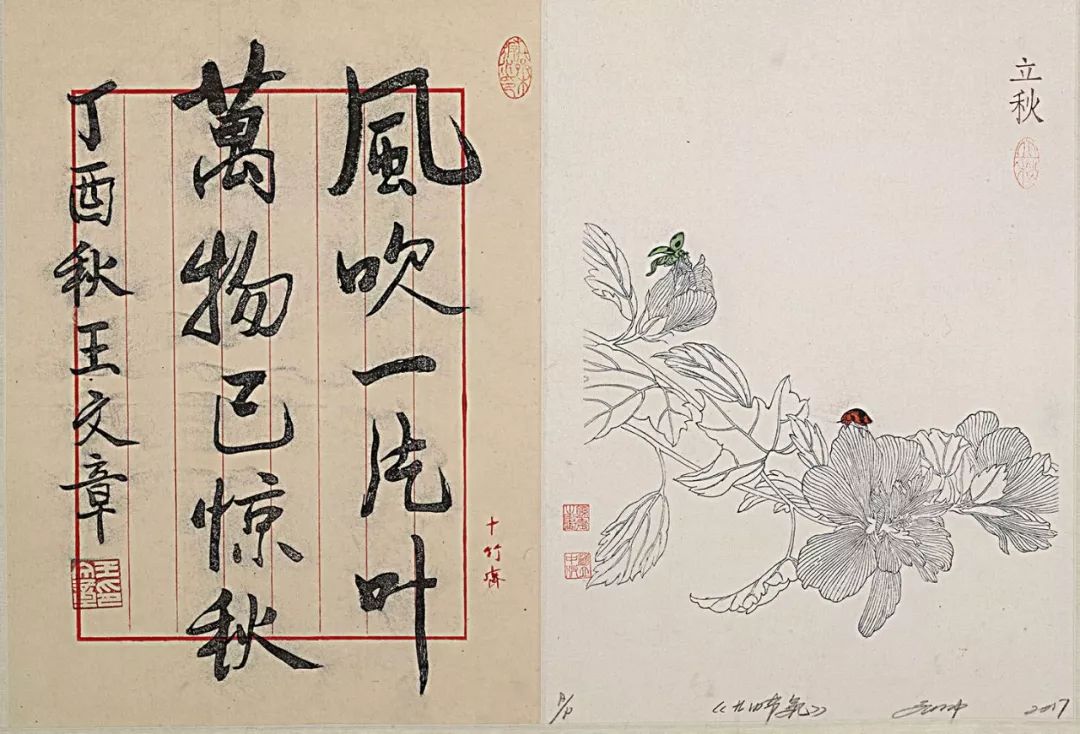 風吹一片叶
萬物已惊秋
丁酉秋王文章
十竹齋
立秋
A/P
《廿四節氣》
2017